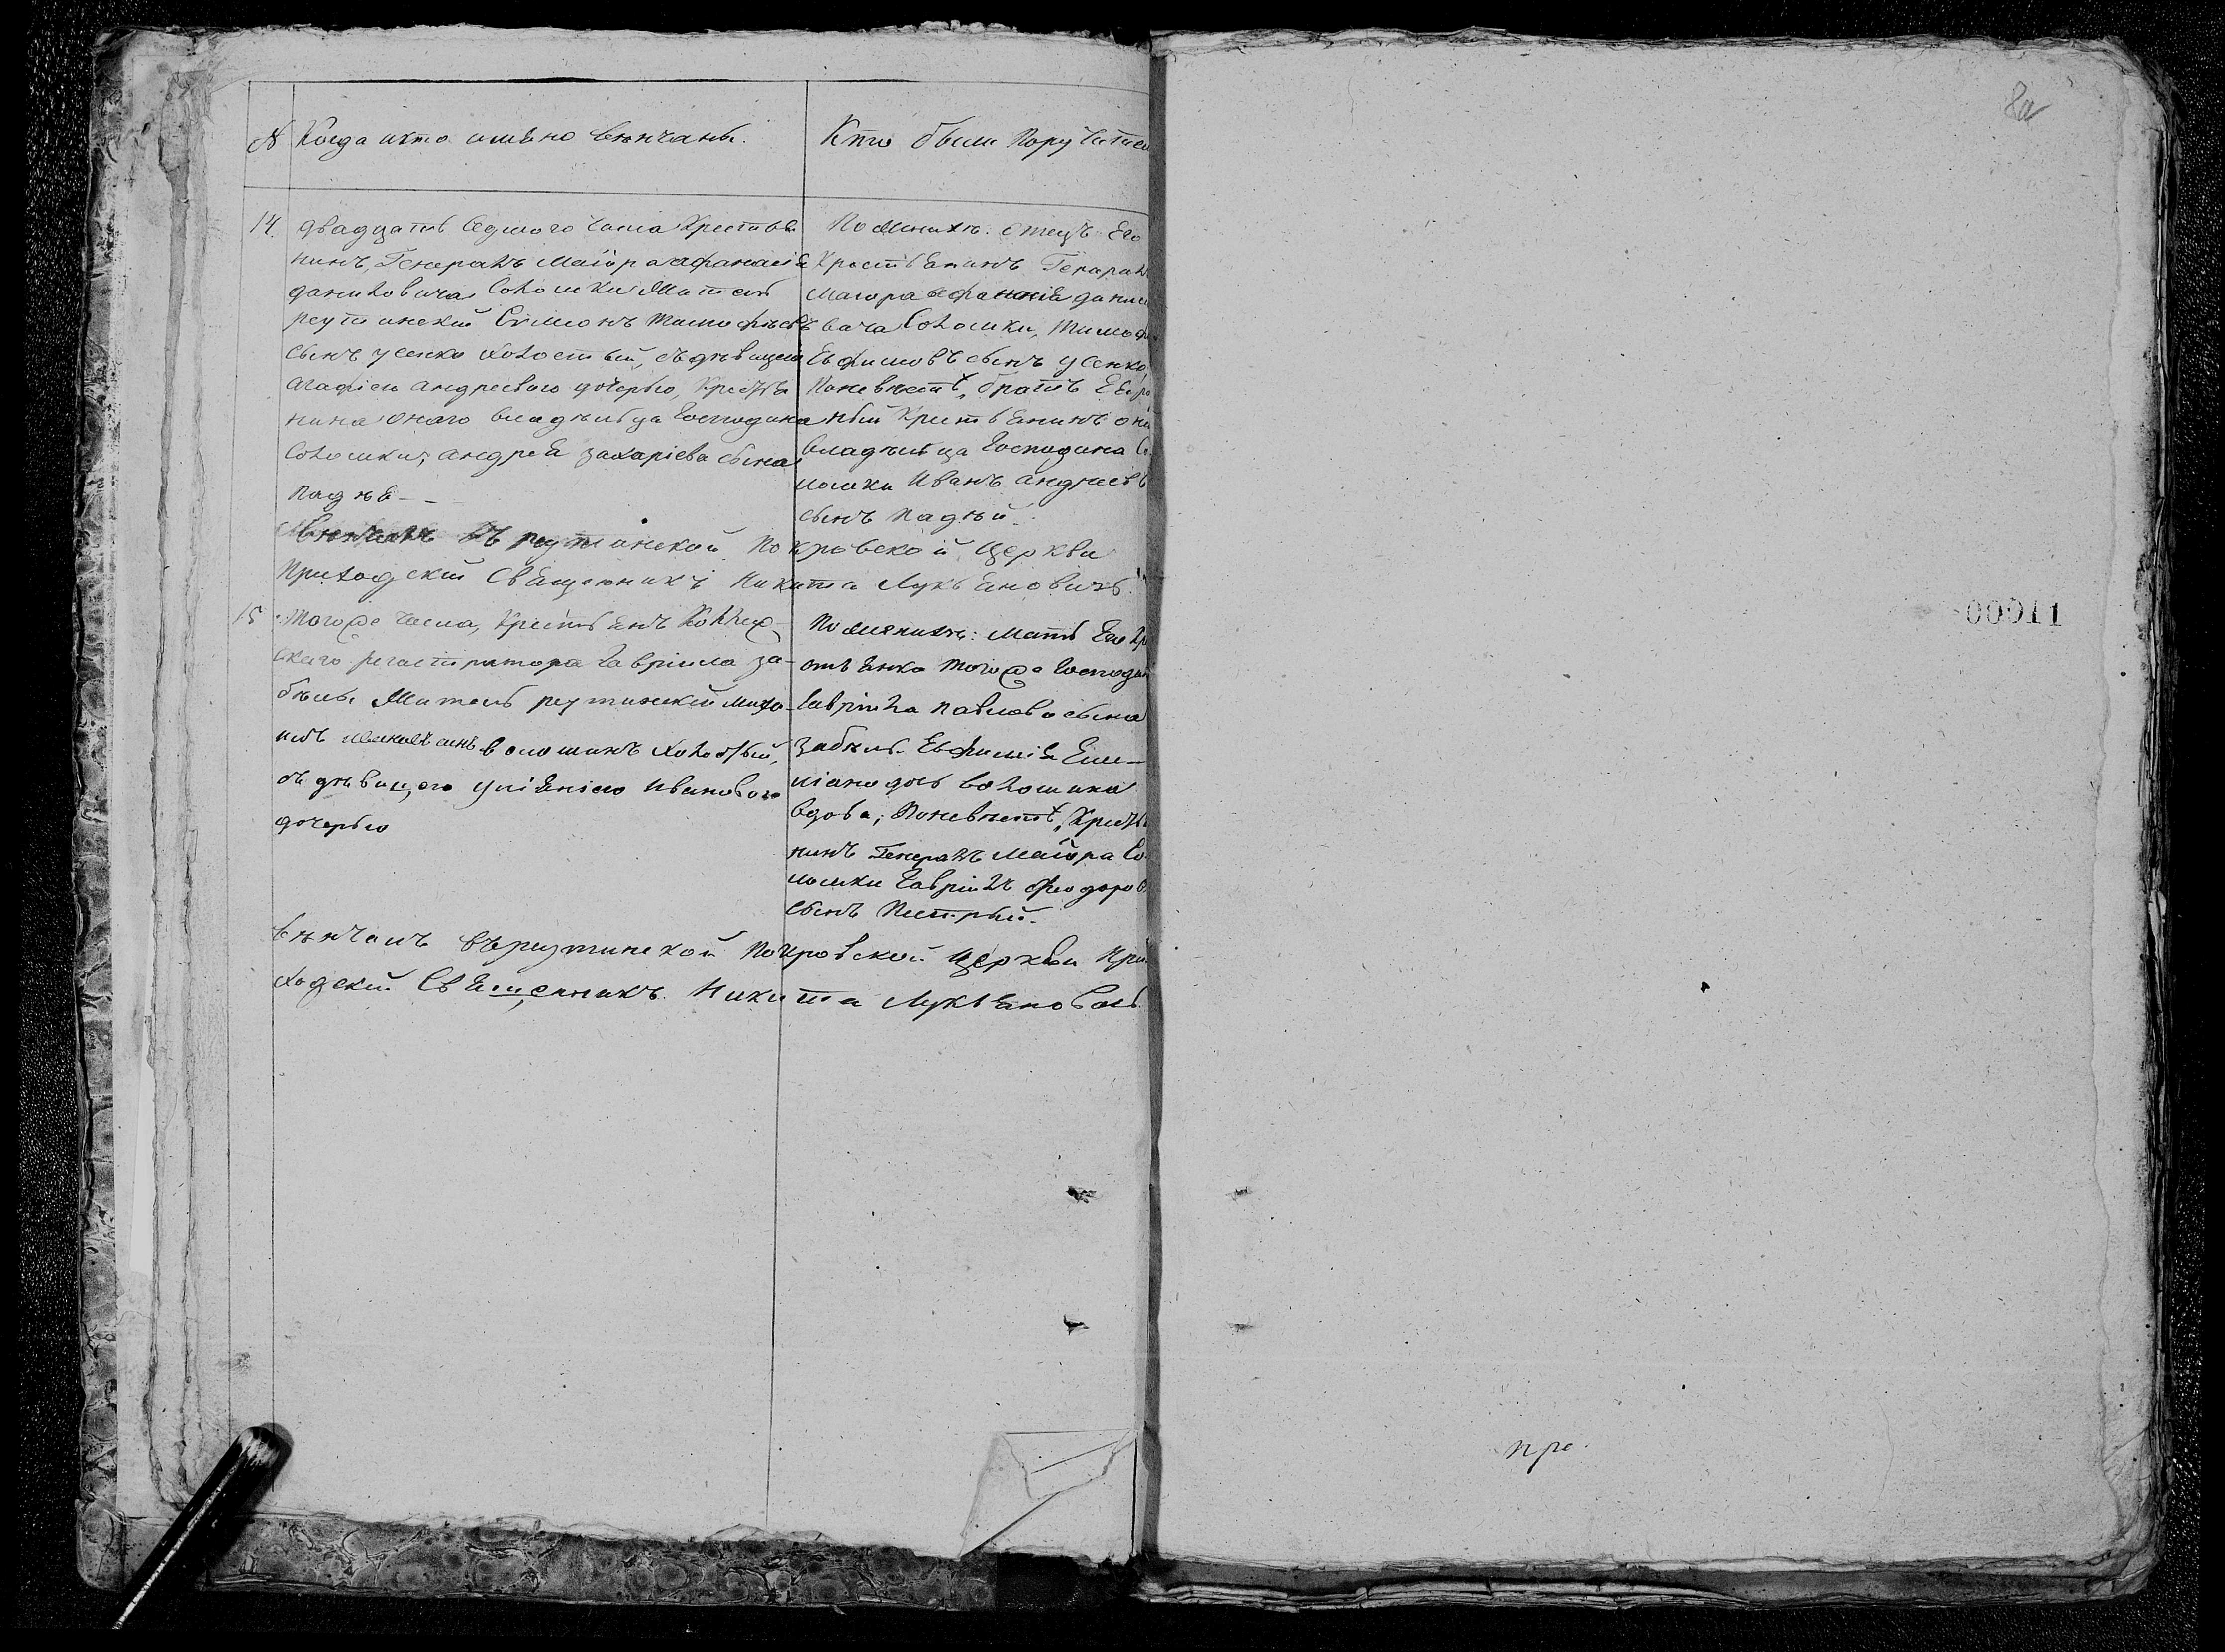 № Когда икто имено венчаны.
Кто были Поручители
14. двадцать Седмого числа Крестья
нинъ, Генералъ Маіора афанасія
даниловича Соломки Житель
реутинский Симонъ тимофѣевъ
сынъ усенко холостый, съ дѣвицею
агафіею андреевою дочерью, крестья
нина оного владѣльца Господина
Соломки, андрея захаріева сына
падня
По Женихѣ. отецъ Его
Крестьянинъ Генералъ
Маіора афанасія данил
вича Соломки, тимоф
Евфимовъ сынъ усенко,
Поневѣстѣ, братъ Ея ро
ный Крестьянинъ он
владѣльца Господина Со
ломки Иванъ андреевъ
сынъ падній.
Венчалъ въ реутинской покровской Церкви
приходский Священникъ Никита Лукьяновичъ
15 Тогоже числа, Крестьянъ Коллеж-
скаго регистратора Гавріила за-
бѣлы Житель реутинский миха-
илъ сынъ волошинъ холостый,
съ дѣвицею уліяніею Ивановою
дочерью
По Женихѣ: Мать Его Кре
стьянка тогоже Господин
Гавріила павлова сына
забѣлы Евфимія Еме-
ліано дочь волошина
вдова; Поневѣстѣ, Крестья
нинъ Генералъ Маіора Со
ломки Гавріилъ феодоров
сынъ Пестрый.
вѣнчалъ въреутинской покровской церкви при
ходский Священникъ Никита Лукьяновичъ.
00011
пре.